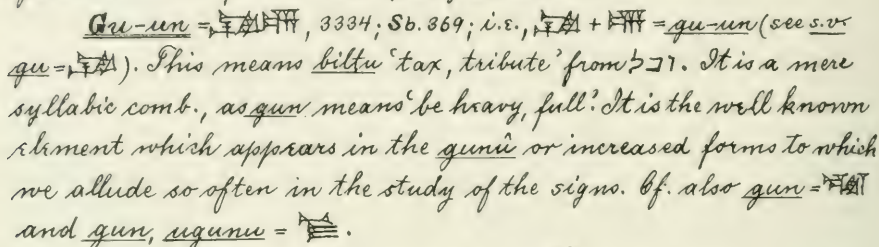 Gu-un = 𒄘𒌦, 3334; Sb. 369; i.e., 𒄘 + 𒌦 = gu-un (see s.v.
gu = 𒄘). This means biltu ‘tax, tribute’ from ובל. It is a mere
syllabic comb., as gun means ‘be heavy, full’. It is the well known
element which appears in the gunû or increased forms to which
we allude so often in the study of the signs. Cf. also gun =
and gun, ugunu = .